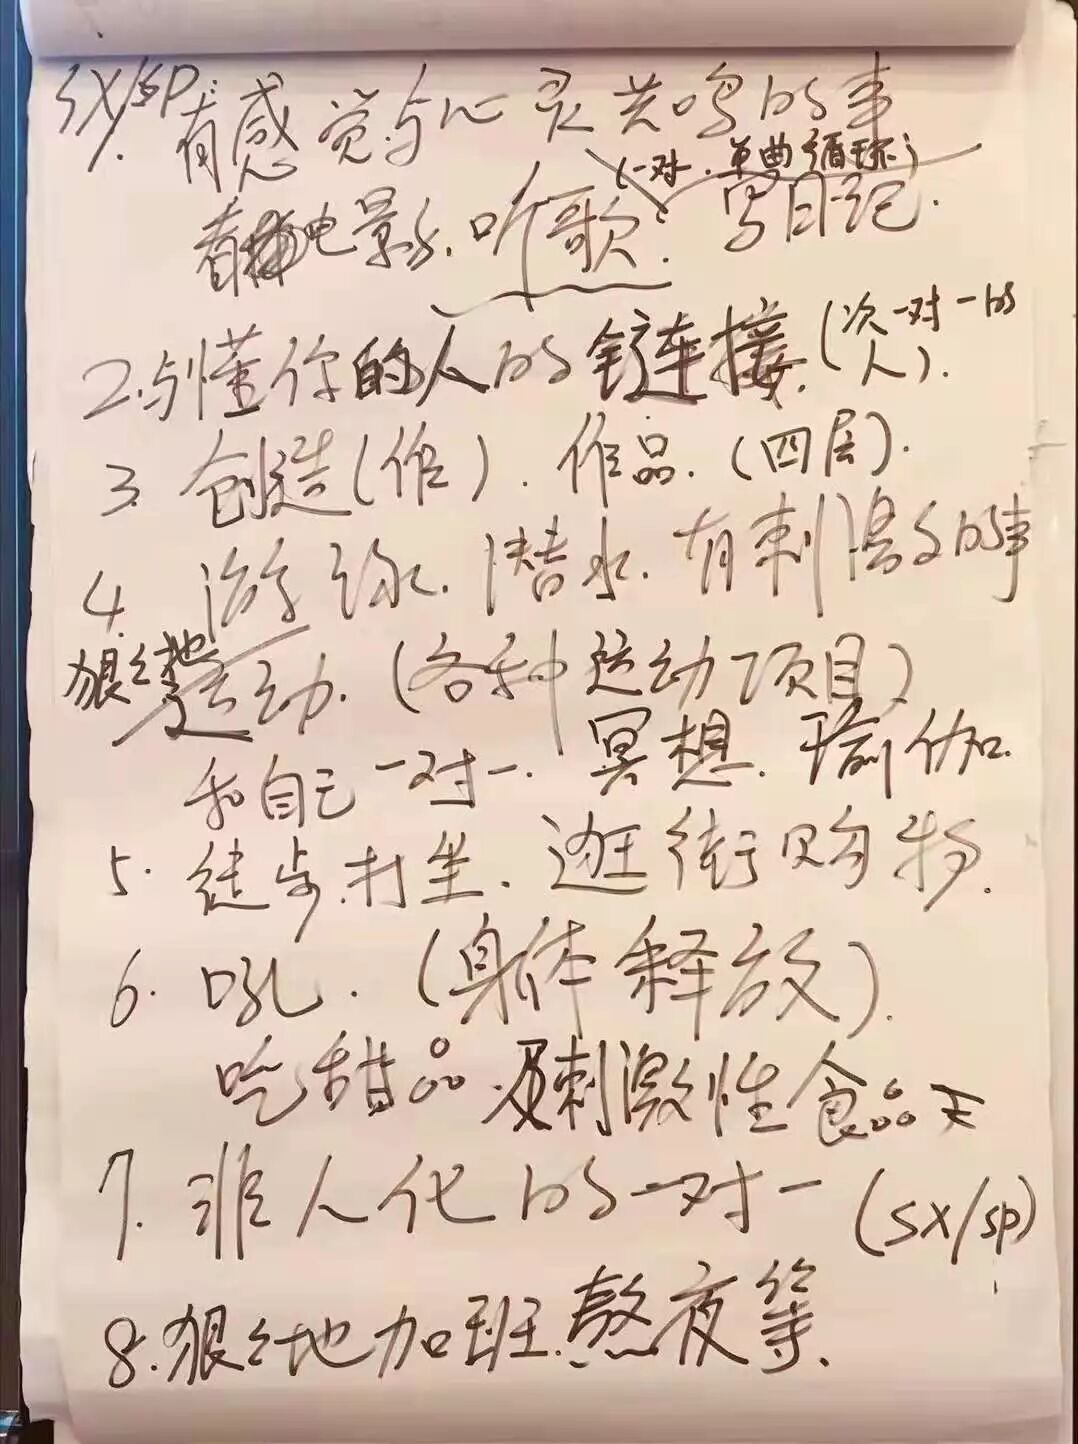 SX/SP
1. 有感觉与心灵共鸣的事
(一对一.单曲循环)
看电影.听歌.写日记.
2.与懂你的人的链接.(次一对一的人).
3 创造(作).作品.(四层).
4. 游泳.潜水.有刺激的事
狠狠地运动.(各种运动项目)
和自己一对一.冥想.瑜伽.
5.徒步.打坐.逛街购物.
6.吼.(身体释放).
吃甜品.及刺激性食品
7.非人化的一对一(SX/SP)
8.狠狠地加班.熬夜等.